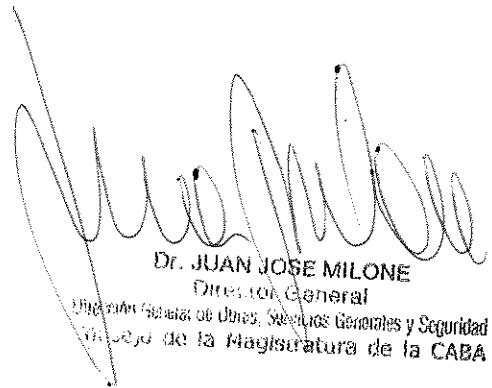 Dr. JUAN JOSE MILONE
Director General
Dirección General de Obras, Servicios Generales y Seguridad
Consejo de la Magistratura de la CABA